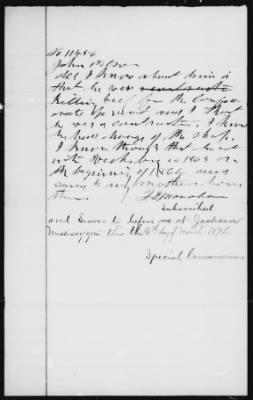 No 11486
John
All I know about him is
that he was
killing beef for the Confed-
erate Government and I that
he was a contractor. I know
he had charge of the shop.
I know though that he
into Vicksburg in 1863 or
the beginning of 1864 and
came to my mothers from
there
Subscribed
and Sworn to before me at Jackson
Mississippi this the day of March 187
Special Commissioner